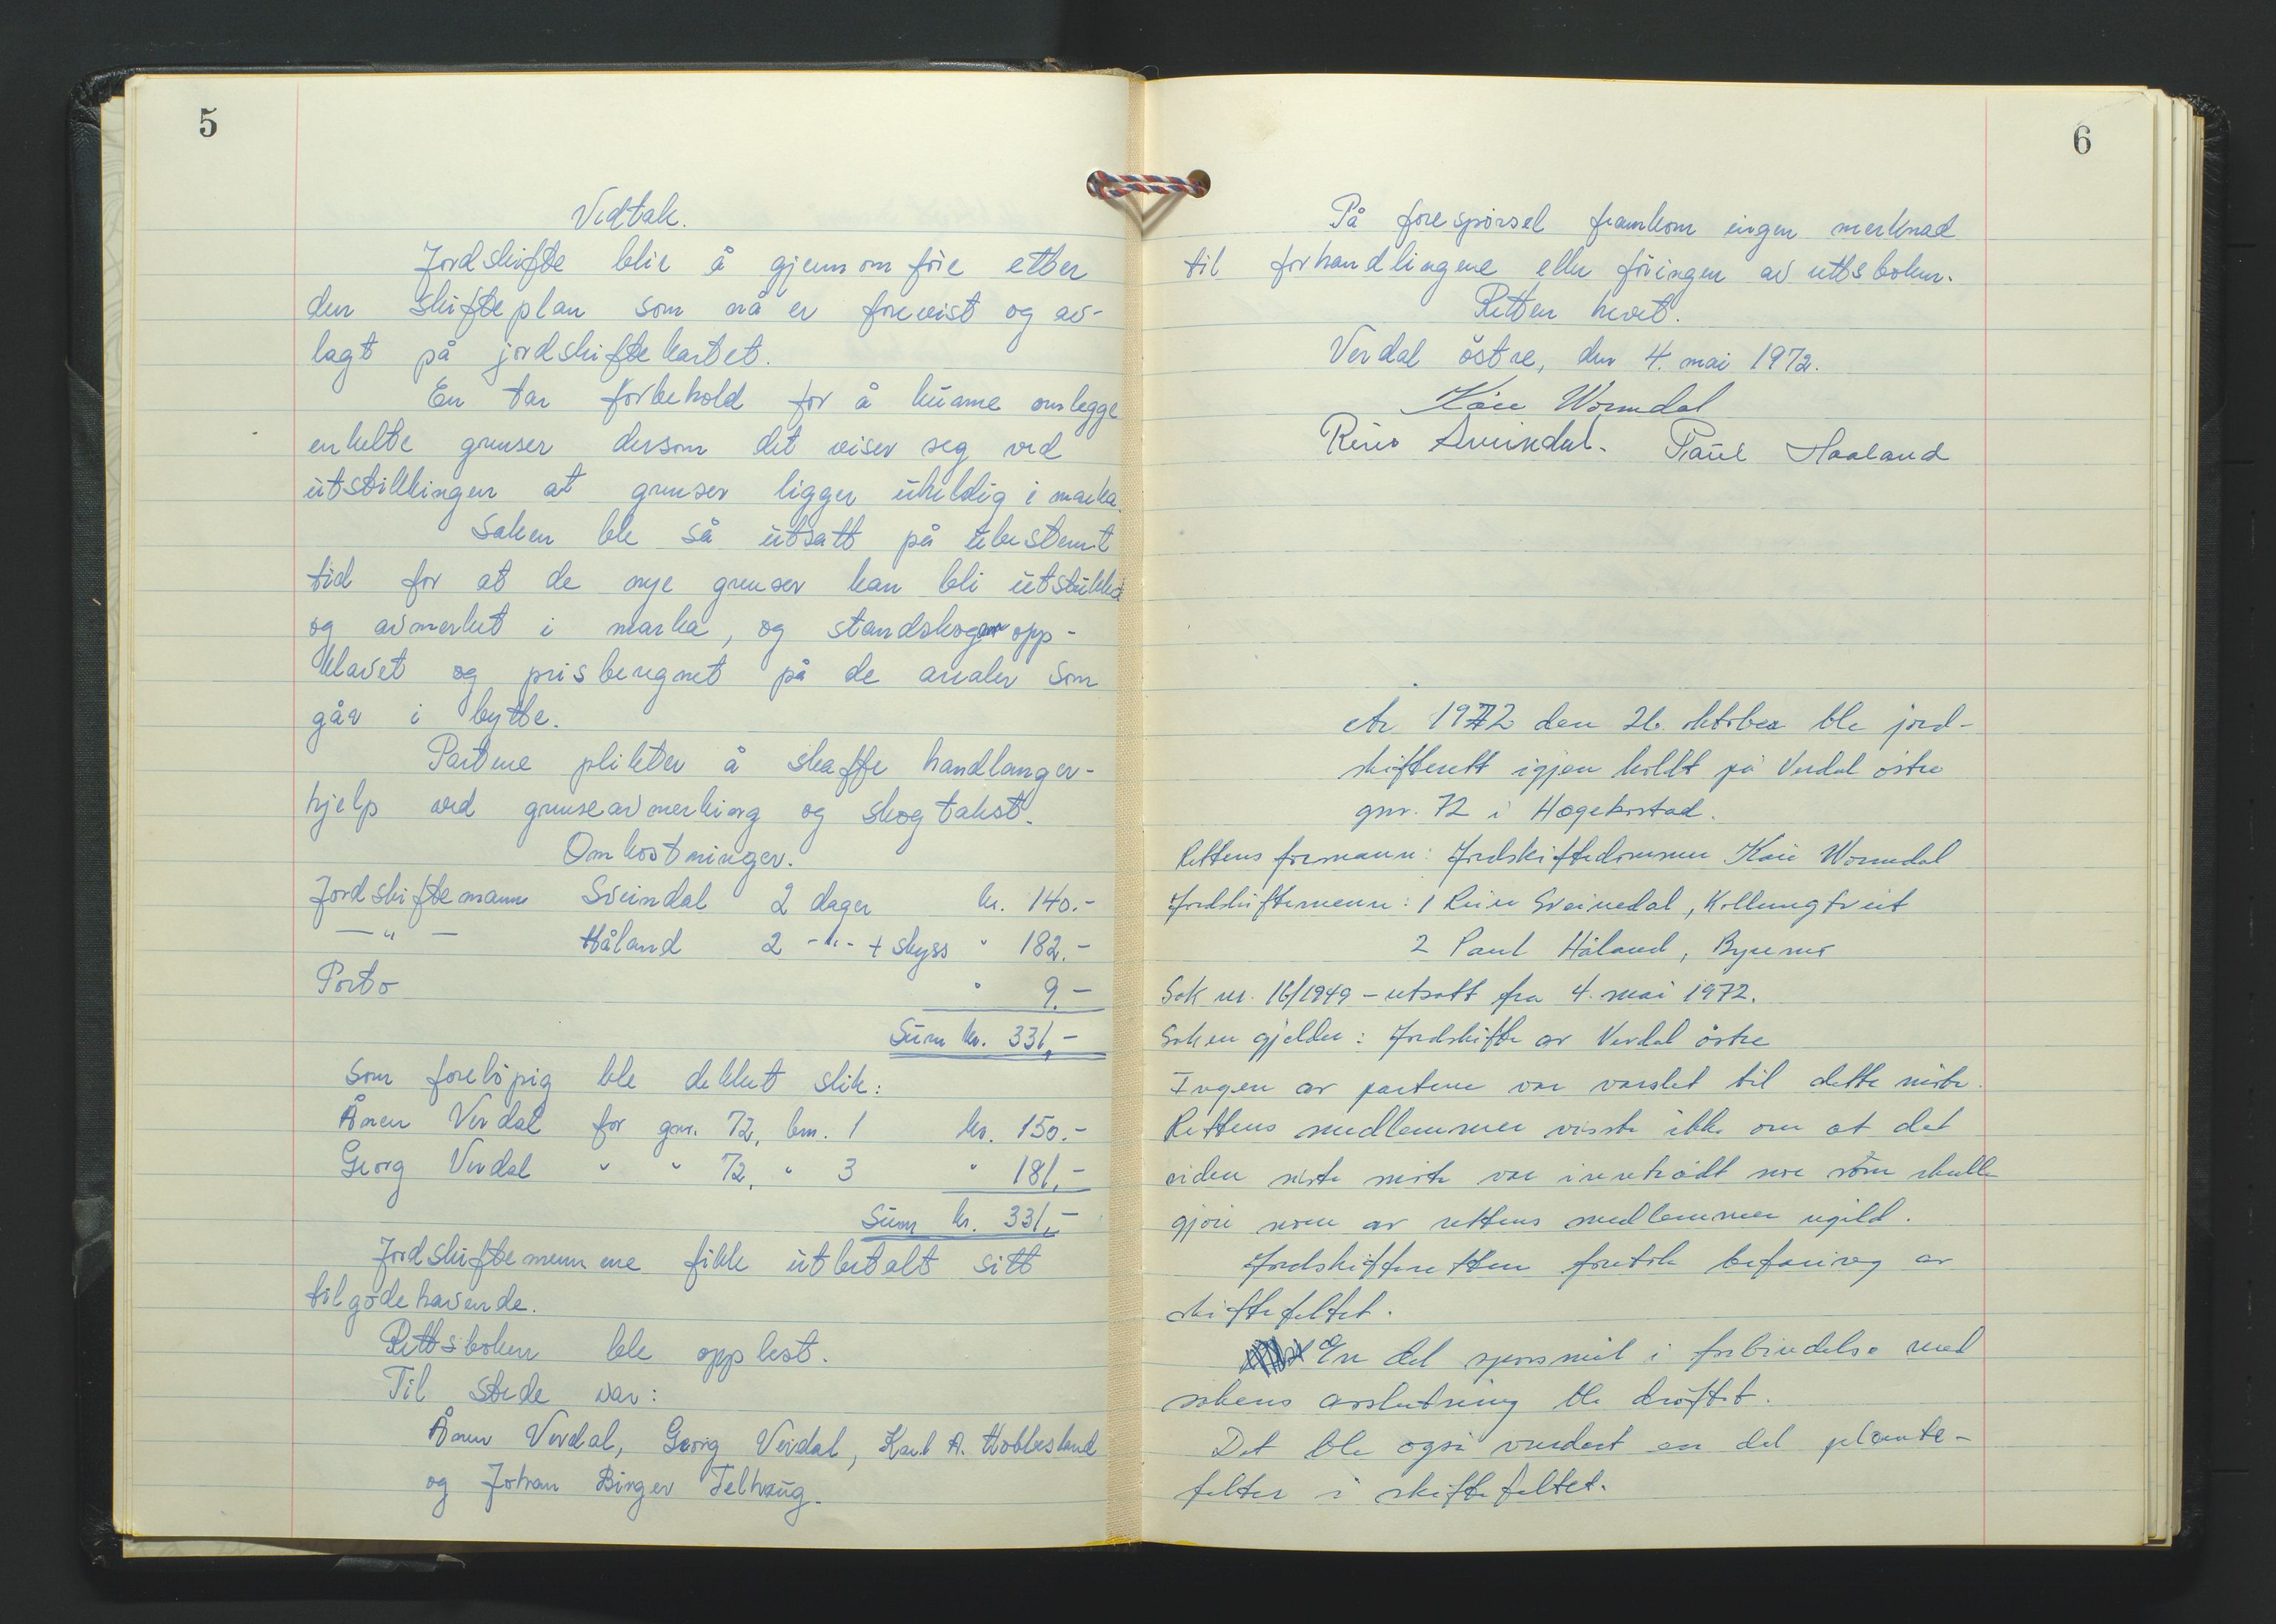 5
Vedtak.
Jordskifte blir å gjennomføre etter
den skifteplan som nå er forevist og av-
lagt på jordskiftekartet.
En tar forbehold for å kunne omlegge
enkelte grenser dersom det viser seg ved
utstikkingen at grenser ligger uheldig i marka.
Saken ble så utsatt på ubestemt
tid for at de nye grenser kan bli utstukket
og avmerket i marka, og standskogen opp-
klavet og prisberegnet på de arealer som
går i bytte.
Partene plikter å skaffe handlanger-
hjelp ved grenseavmerking og skogtakst.
Omkostninger.
Jordskiftemann Sveindal 2 dager kr. 140.-
—"— Håland 2 -"- + skyss " 182.-
Porto " 9.-
Sum kr. 331,-
Som foreløpig ble dekket slik:
Ånen Verdal for gnr. 72, bnr. 1 kr. 150.-
Georg Verdal " " 72, " 3 " 181,-
Sum kr. 331,-
Jordskiftemennene fikk utbetalt sitt
tilgodehavende.
Rettsboken ble opplest.
Til stede var:
Ånen Verdal, Georg Verdal, Karl A. Hobbesland
og Johan Binger Telhaug.
6
På forespørsel framkom ingen merknad
til forhandlingene eller føringen av rettsboken.
Retten hevet.
Verdal östre, den 4. mai 1972.
Kåre Wormdal
Reino Sveindal. Paul Haaland
År 1972 den 26. oktober ble jord-
skifterett igjen holdt på Verdal östre
gnr. 72 i Hægebostad.
Rettens formann: Jordskiftedommer Kåre Wormdal
Jordskiftemenn: 1 Reino Sveinedal, Kollungtveit
2 Paul Håland, Byremo
Sak nr. 16/1949 - utsatt fra 4. mai 1972.
Saken gjelder: Jordskifte av Verdal östre
Ingen av partene var varslet til dette møte.
Rettens medlemmer visste ikke om at det
siden siste møte var inntrådt noe som skulle
gjøre noen av rettens medlemmer ugild.
Jordskifteretten foretok befaring av
skiftefeltet.
En del spørsmål i forbindelse med
sakens avslutning ble drøftet.
Det ble også vurdert en del plante-
felter i skiftefeltet.